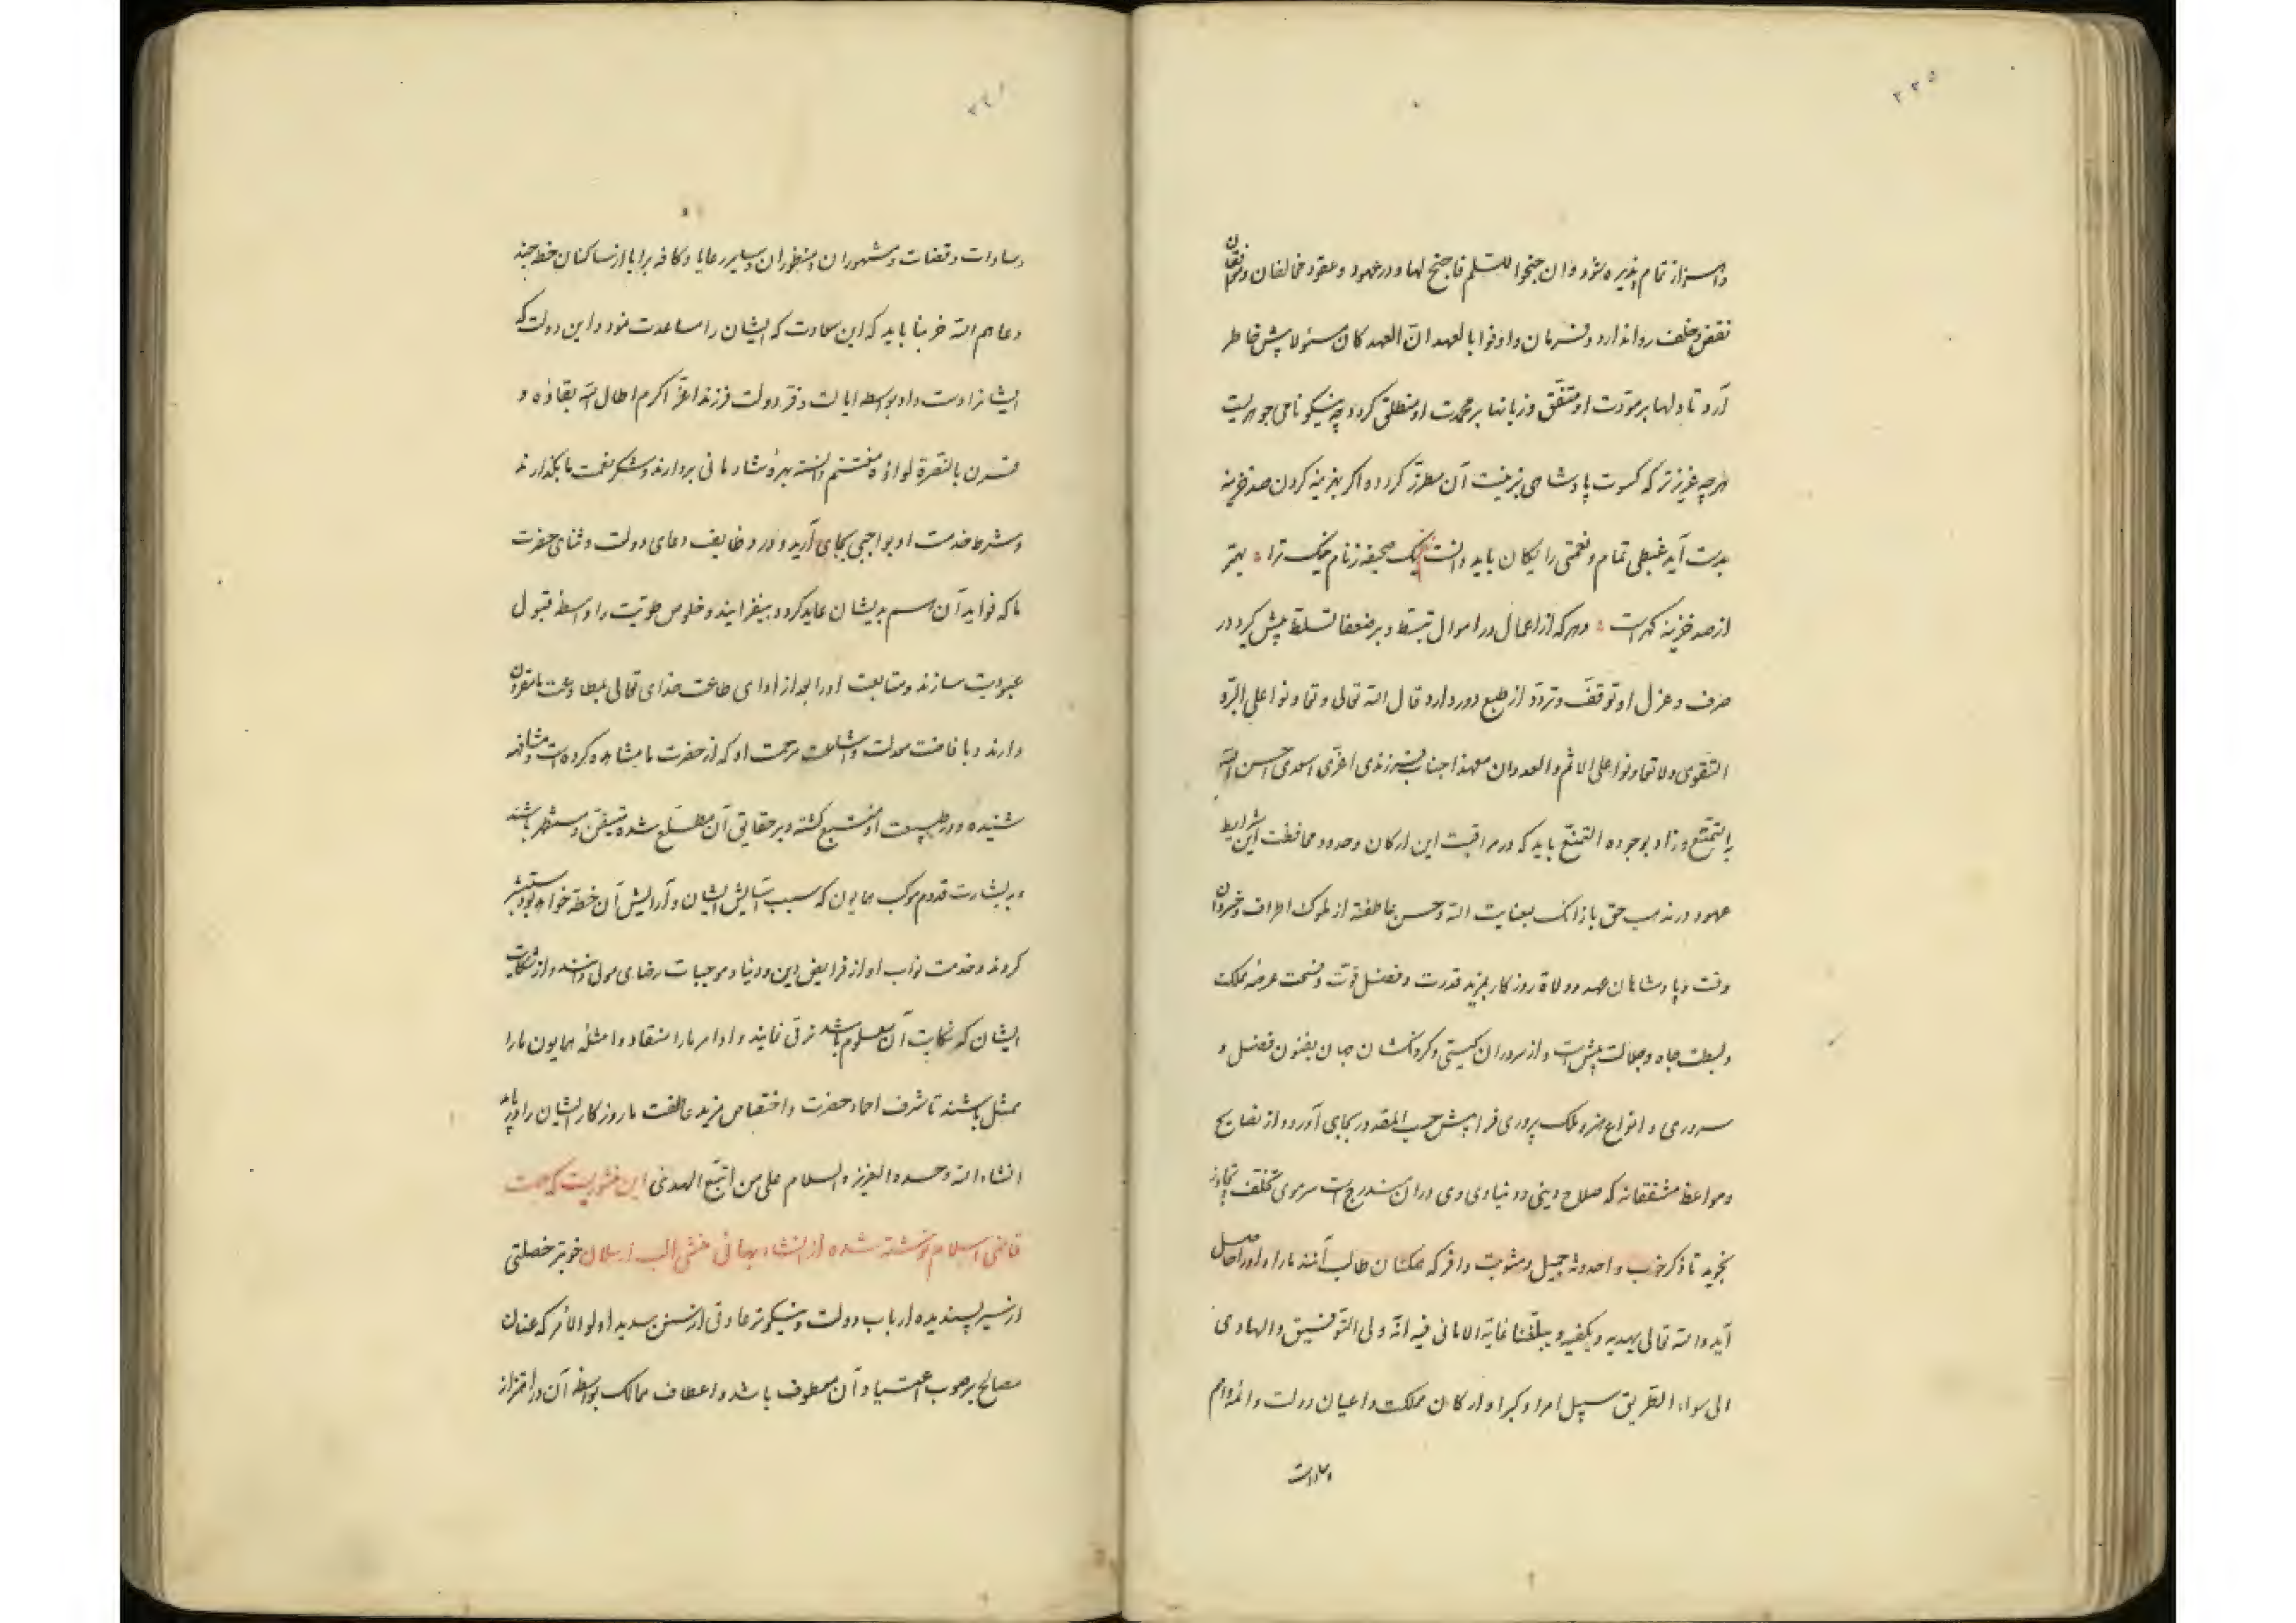 ۲۳۵
واحتراز تمام پذیره شود وان جنحوا للسلم فاجنح لها و در عهود و عقود مخالفان و موافقان
نقض و خلف روا ندارد و فرمان واوفوا بالعهد ان العهد کان مسئولا پیش خاطر
آرد تا دلها بر مودت او متفق و زبانها بر محمدت او منطلق گردد چه نیکو نامی جوهریست
هرچه عزیزتر که کسوت پادشاهی بزینت آن مطرز گردد و اگر بهزینه کردن صد خزینه
بدست آید غبطی تمام و نعمتی رایگان باید دانست یک صحیفه ز نام نیک ترا ؞ بهتر
از صد خزینه گهرست ؞ و هرکه از اعمال در اموال تبسط و بر ضعفا تسلط پیش گیرد در
صرف و عزل او توقف و تردد از طبع دور دارد قال الله تعالی وتعاونوا علی البر و
التقوی ولا تعاونوا علی الاثم والعدوان معهذا جناب فرزندی اعزی اسعدی احسن الله
به التمتع و زاد بوجوده التمنع باید که در مراقبت این ارکان و حدود و محافظت این شرایط
عهود در مذهب حق بازآنک بعنایت الله و حسن عاطفته از ملوک اطراف و خسروان
وقت و پادشاهان عهد و ولاة روزگار بمزید قدرت و فضل قوت و فسحت عرصه مملکت
و بسطت جاه و جلالت پیش است و از سروران گیتی و گردنکشان جهان بفنون فضل و
سروری و انواع هنر و ملک پروری فرا پیش حسب المقدور بجای آورد و از نصایح
و مواعظ مشفقانه که صلاح دینی و دنیاوی وی در آن مندرج است سر موی تخلف و تجاوز
نجوید تا ذکر خوب و احدوثه جمیل و مثوبت وافر که همگنان طالب آنند ما را و او را حاصل
آید والله تعالی یهدیه و یکفیه و یبلغنا غایة الامانی فیه انه ولی التوفیق والهادی
الی سواء الطریق سبیل امرا و کبرا و ارکان مملکت و اعیان دولت و ائمه و ام
وسادات
وسادات و قضات و مشهوران و منظوران و سایر رعایا و کافه برایا از ساکنان خطه جند
دعاهم الله خربنا باید که این سعادت که ایشان را مساعدت نمود و این دولت که
ایشانرا دست داد بواسطه ایالت و فر دولت فرزند اعز اکرم اطال الله بقاؤه و
قرن بالنصرة لواؤه مغتنم دانسته بهره شادمانی بردارند و شکر نعمت ما بگذارند
و شرط خدمت او بواجبی بجای آرند و در وظایف دعای دولت و ثنای حضرت
ما که فواید آن هم بدیشان عاید گردد بیفزایند و خلوص طویت را واسطه قبول
عبودیت سازند و متابعت او را بعد از ادای طاعت خدای تعالی بمطاوعت ما مقرون
دارند و با فاضت معدلت و اشاعت مرحمت او که از حضرت ما مشاهده کرده است و مشافهه
شنیده و در طبیعت او منتبع گشته و بر حقایق آن مطلع شده متیقن و مستظهر باشند
و به بشارت قدوم موکب همایون که سبب آسایش ایشان و آرایش آن خطه خواهد بود مستبشر
گردند و خدمت نواب او از فرایض دین و دنیا و موجبات رضای مولی دانند و از شکایت
ایشان که نکایت آن معلوم باشد توقی نمایند و اوامر ما را منقاد و امثله همایون ما را
ممثل باشند تا شرف احماد حضرت و اختصاص مزید عاطفت ما روزگار ایشان را دریابد
انشاء الله وحده العزیز والسلام علی من اتبع الهدی این منشوریست که جهت
قاضی اسلام نوشته شده از انشاء بهائی منشی الب ارسلان خوبتر خصلتی
از سیر پسندیده ارباب دولت و نیکوتر عادتی از سنن سدید اولوالامر که عنان
مصالح بر صوب اعتیاد آن معطوف باشد و اعطاف ممالک بواسطه آن در اهتزاز